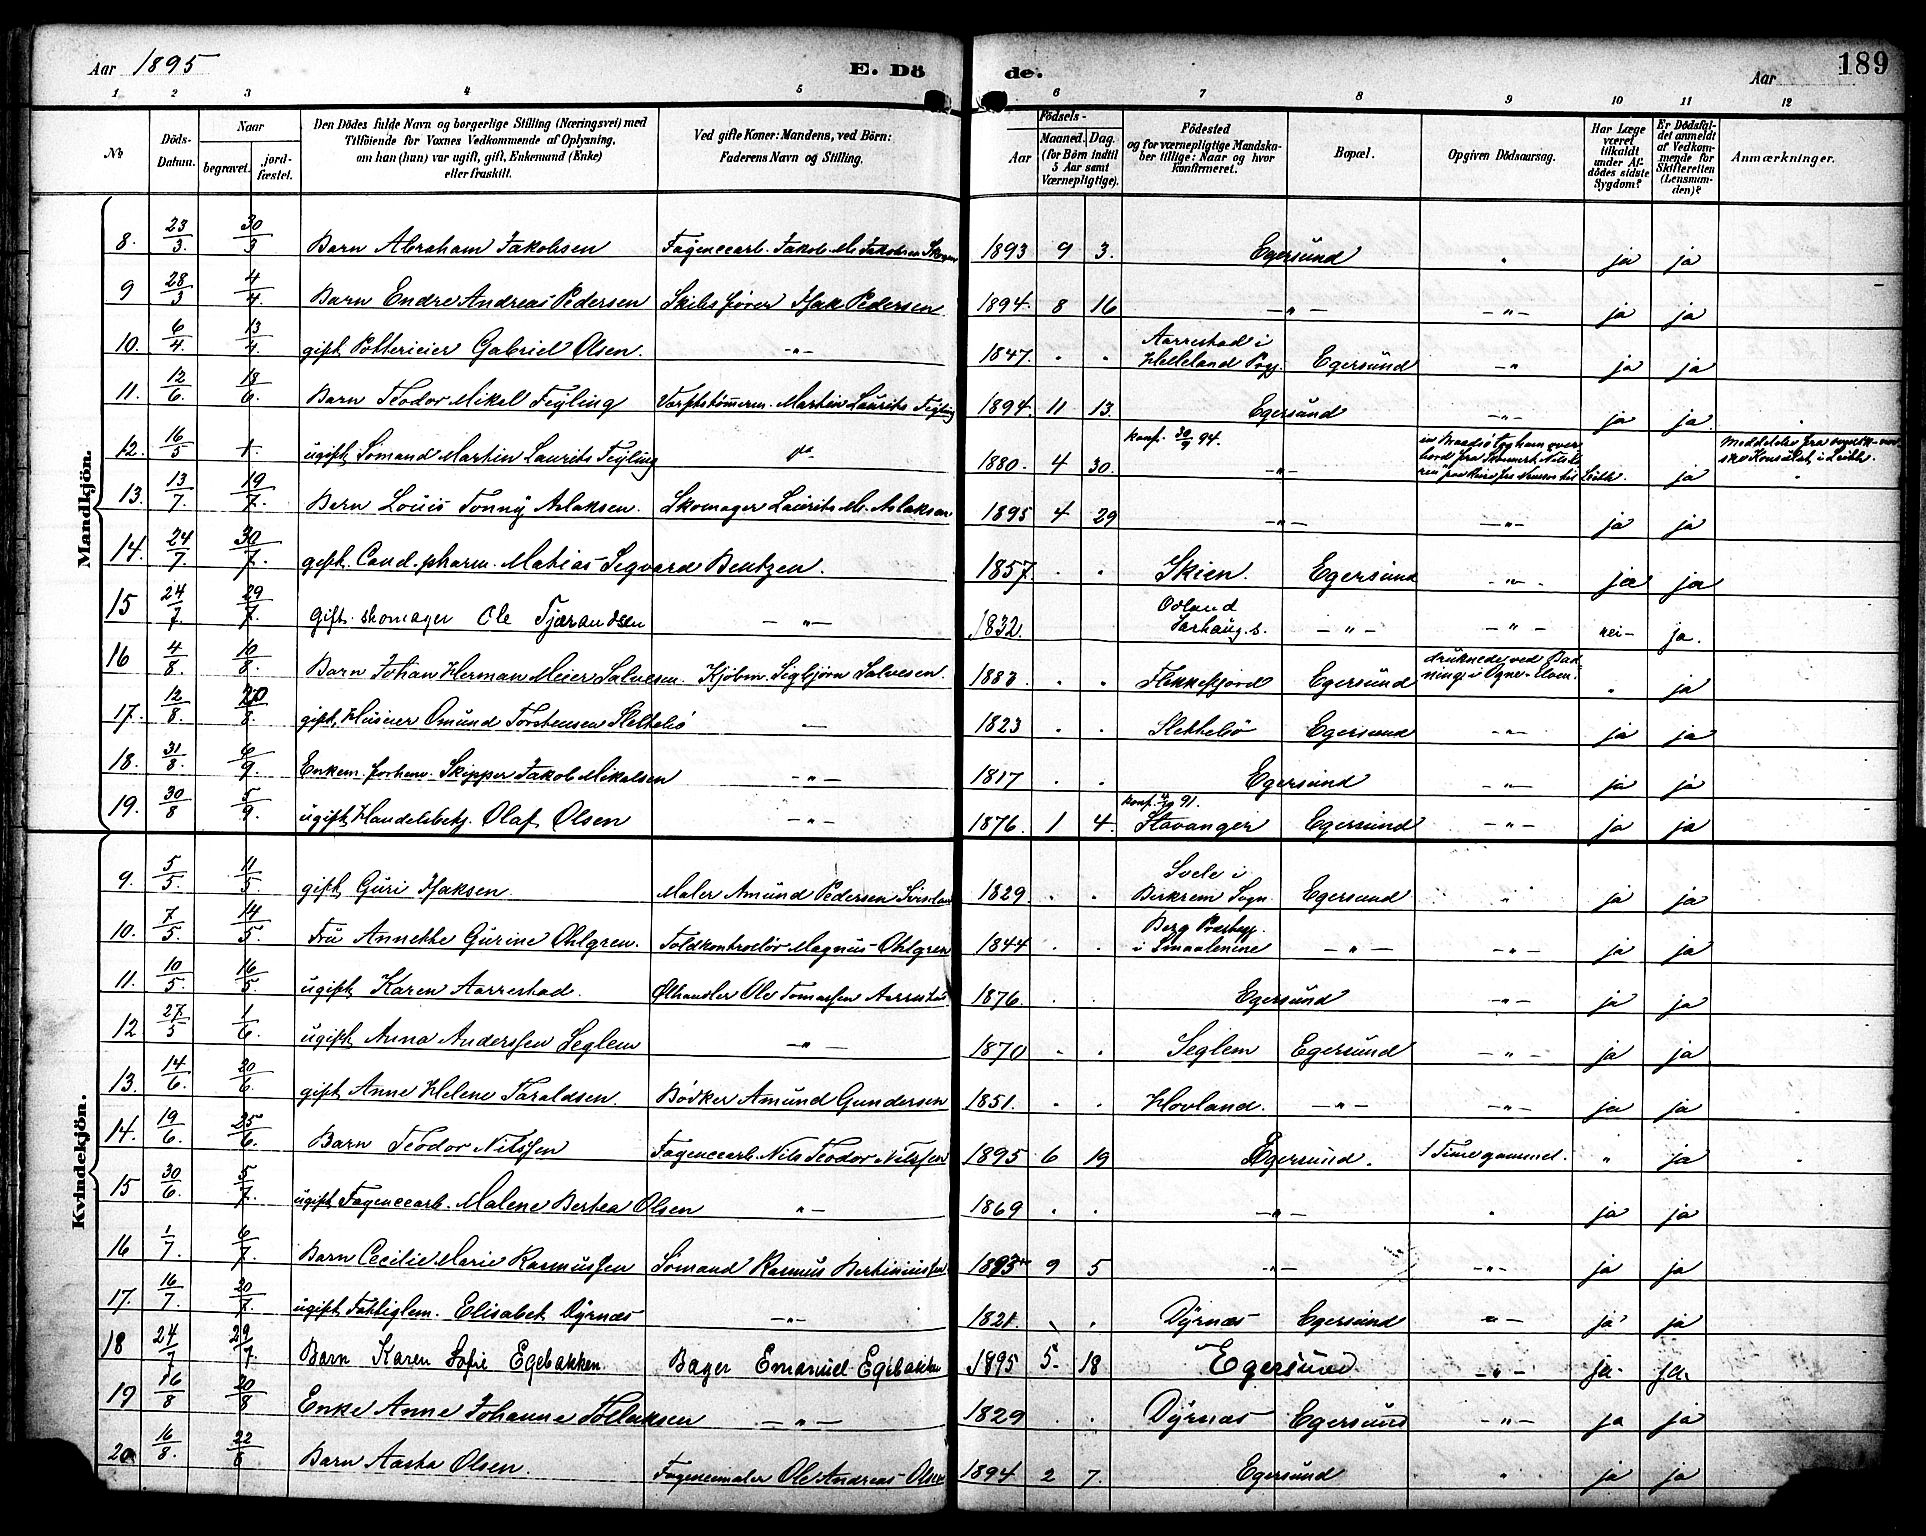 Aar 1895 E. Dö de. Aar 189
1 2 3 4 5 6 7 8 9 10 11 12
No
Döds-Datum.
Naar begravet. jord-fæstet.
Den Dödes fulde Navn og borgerlige Stilling (Næringsvei) med Tilföiende for Voxnes Vedkommende af Oplysning, om han (hun) var ugift, gift, Enkemand (Enke) eller fraskilt.
Ved gifte Koner: Mandens, ved Börn: Faderens Navn og Stilling.
Födsels- Aar Maaned. Dag. (for Börn indtil 5 Aar samt Værnepligtige).
Födested og for værnepligtige Mandskaber tillige: Naar og hvor konfirmeret.
Bopæl.
Opgiven Dödsaarsag.
Har Læge været tilkaldt under Afdödes sidste Sygdom?
Er Dödsfaldet anmeldt af Vedkommende for Skifteretten (Lensmanden)?
Anmærkninger.
Mandkjön.
8. 23/3 30/3 Barn Abraham Jakobsen Fayencearb. Jakob M. Jakobsen 1893 9 3. Egersund " ja ja
9 28/3 4/4 Barn Endre Andreas Pedersen Skibsfører Isak Pedersen 1894. 8 16 —"— —"— ja ja
10. 6/4 13/4. gift Potterieier Gabriel Olsen. —"— 1847. " " Aarrestad i Helleland Pgj. Egersund —"— ja ja
11. 12/6. 18/6. Barn Teodor Mikel Feyling Værftstömerm. Martin Laurits Feyling 1894. 11 13. Egersund —"— ja ja.
12. 16/5 ugift Sömand Martin Laurits Feyling do 1880. 4 30. konf. 30/9 94. —"— ja
13. 13/7. 19/7. Barn Louis Tonny Aslaksen. Skomager Laurits M. Aslaksen 1895 4 29 —"— —"— ja ja
14. 24/7 30/7. gift. Cand. pharm. Matias Segvard Bentzen. 1857. " " Skien. Egersund —"— ja ja
15 24/7. 29/7. Gift. skomager Ole Tjærandsen —"— 1832. Varhaug s. —"— —"— nei— ja.
16 4/8. 10/8. Barn Johan Herman Meier Salvesen. Kjöbm. Sigbjörn Salvesen. 1883. " " Flekkefjord Egersund druknede ved Badning i Ogne-Elven. " ja
17. 12/8. 20/8. gift, Huseier Omund Torstensen Slettebö — 1823 " " Slettebö Egersund —"— ja ja
18. 31/8. 6/9. Enkem. forhenv. Skipper Jakob Mikalsen —"— 1817 " " Egersund —"— ja ja
19. 30/8 5/9. ugift, Handelsbetj. Olaf Olsen —"— 1876. 1 4. Stavanger Egersund —"— ja ja
Kvindekjön.
9. 5/5. 11/5 gift Guri Isaksen Maler Amund Pedersen 1829 " " Svele i Birkrem Sogn. Egersund " ja ja
10. 7/5. 14/5. Fru Annette Gurine Ohlgren. Toldkontrollör Magnus Ohlgren 1844 " " Berg Præstegj. i Smaalenene —"— —"— ja ja
11. 10/5. 16/5 ugift, Karen Aarrestad. Ölhandler Ole Tomassen Aarrestad 1876. " " Egersund —"— ja ja
12 27/5 1/6. ugift, Anna Anderssen Seglem —"— 1870 " " Seglem Egersund —"— ja ja
13. 14/6. 20/6. gift Anne Helene Taraldsen. Bödker Amund Gundersen 1851. " " Hovland. —"— —"— ja ja
14. 19/6. 25/6. Barn Teodor Nilssen Fayencearb. Nils Teodor Nilssen 1895 6 19 Egersund. 1 Time gammel. " ja
15 30/6. 5/7. ugift Fayencearb. Malene Bertea Olsen "— 1869 " " —"— " ja ja
16 1/7. 6/7. Barn Cecilie Marie Rasmussen Sömand Rasmus Bertiniussen 1893 9 5 —"— —"— ja ja
17. 16/7. 20/7. ugift, Fattiglem. Elisabet Dyrnæs —"— 1821. " " Dyrnæs Egersund —"— ja ja
18 24/7 29/7. Barn Karen Sofie Egebakken Bager Emanuel Egebakken 1895 5. 18 Egersund —"— ja. ja.
19 16/8 20/8 Enke Anne Johanne —"— 1829 " " Dyrnæs Egersund —"— ja ja
20 16/8. 22/8 Barn Aasta Olsen. Fayencemaler Ole Andreas Olsen 1894 2 7. Egersund " ja ja